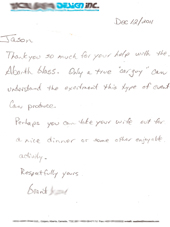 DESIGN INC.
Dec 12/2011
Jason
Thank you so much for your help with the
Abarth Glass. Only a true "car guy" can
understand the excitment this type of event
Can produce.
Perhaps you can take your wife out for
a nice dinner or some other enjoyable
activity.
Respectfully yours